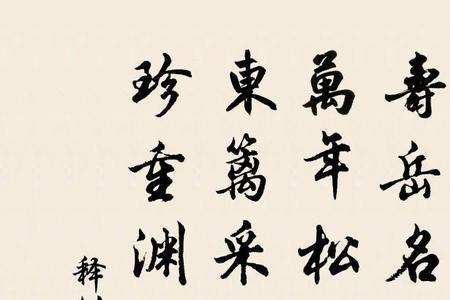 壽岳名
萬年松
東篱采
珍重渊
释